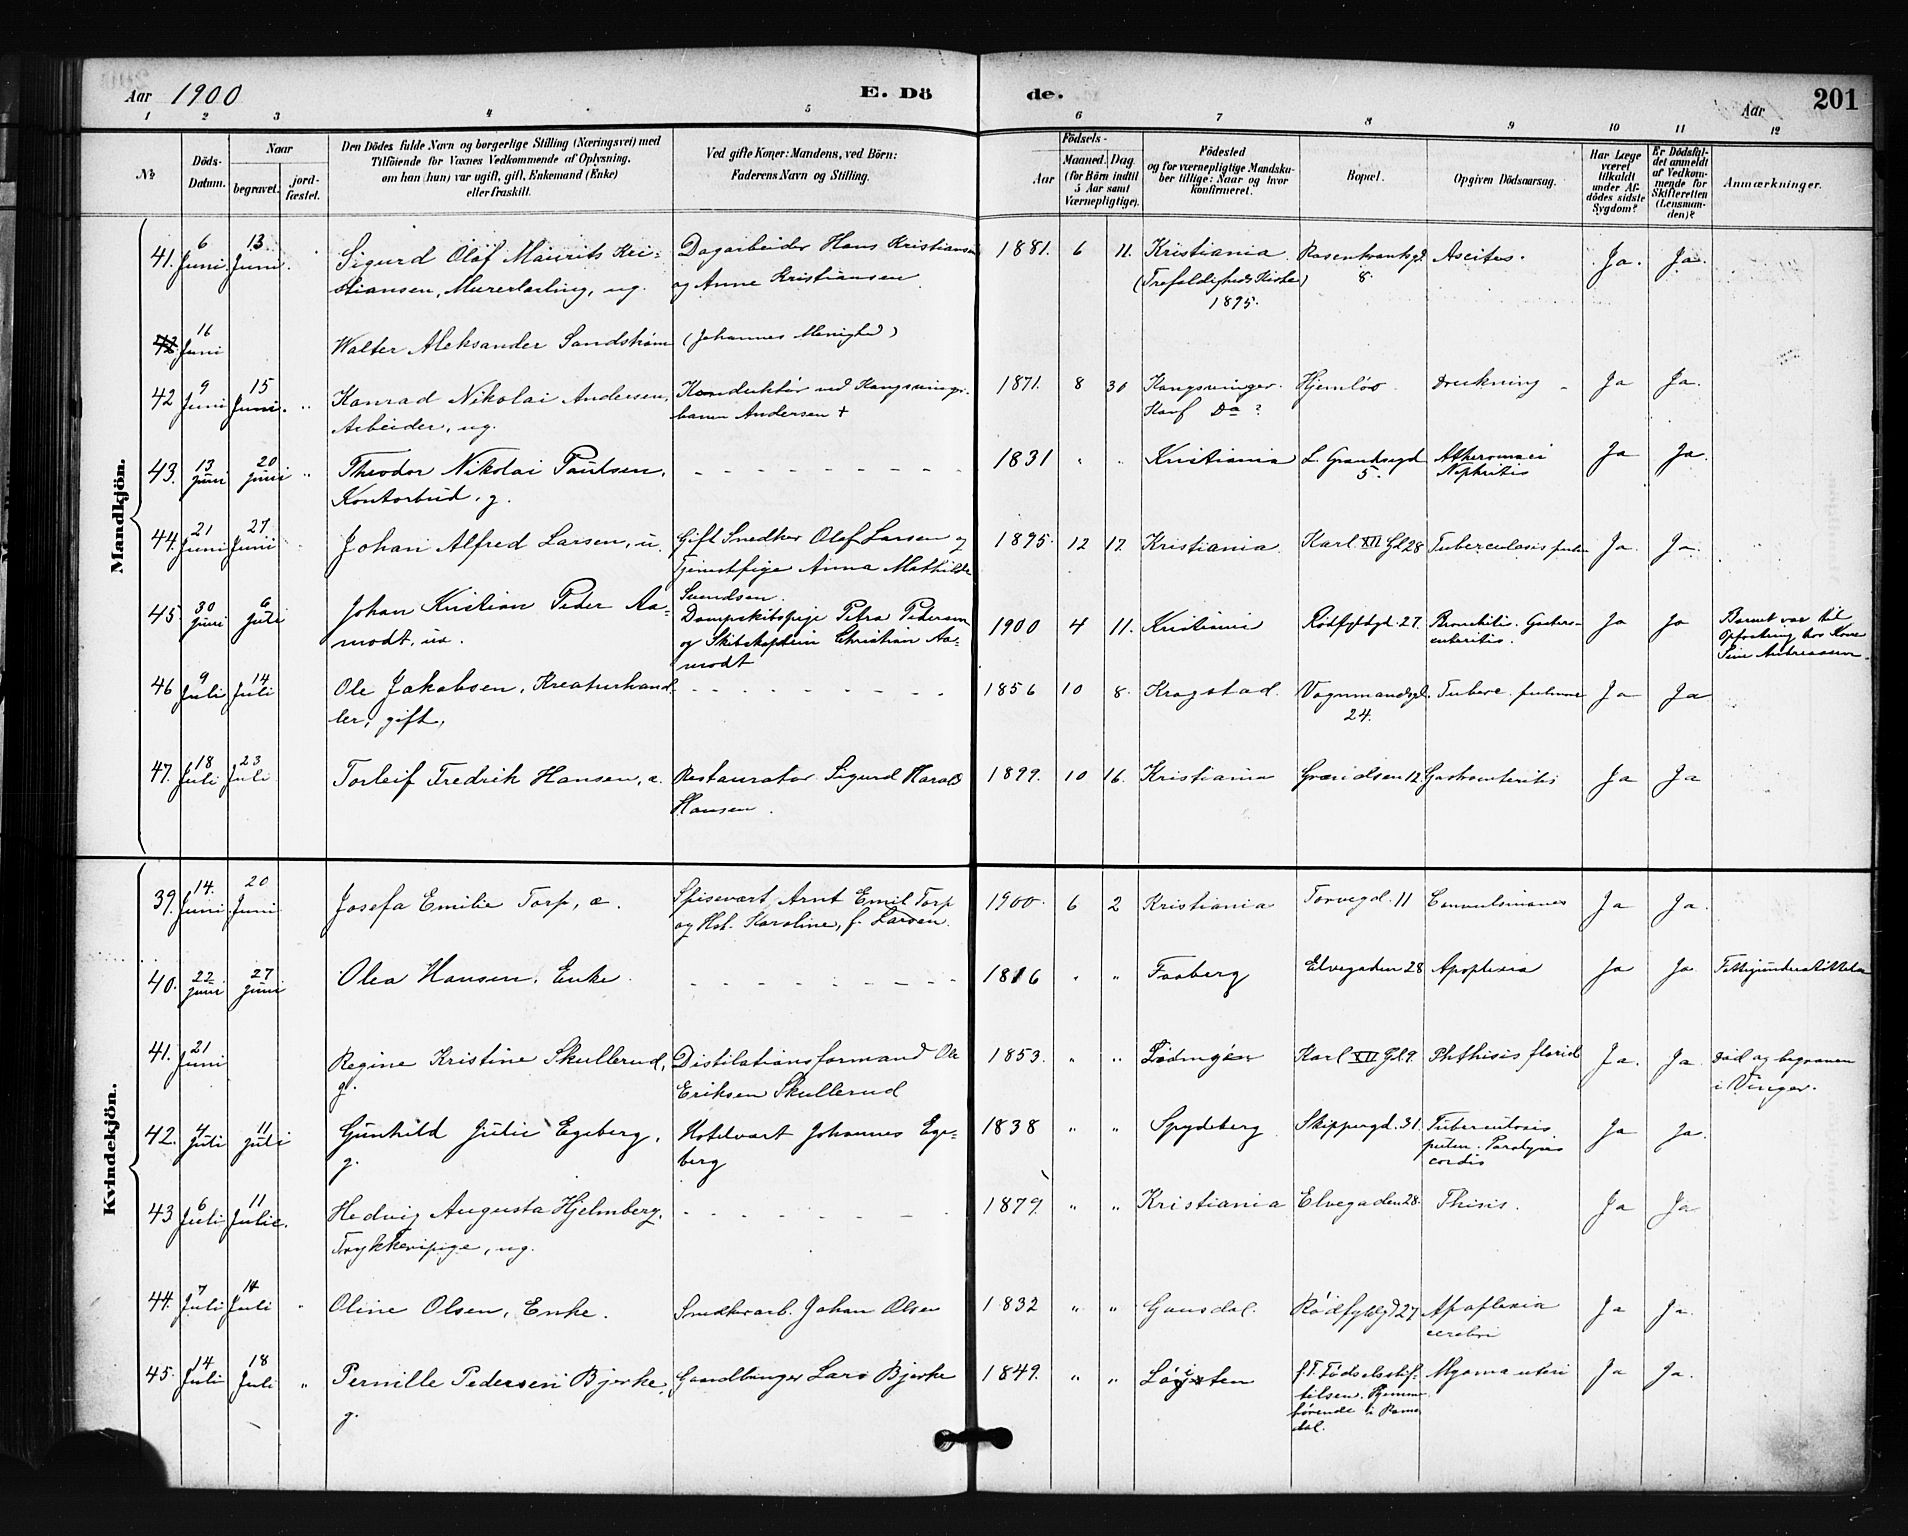 Aar 1900 E. Dö de. Aar 201
1 2 3 4 5 6 7 8 9 10 11 12
No Döds-Datum. Naar begravet. jordfæstet. Den Dödes fulde Navn og borgerlige Stilling (Næringsvei) med Tilföiende for Voxnes Vedkommende af Oplysning, om han (hun) var ugift, gift, Enkemand (Enke) eller fraskilt. Ved gifte Koner: Mandens, ved Börn: Faderens Navn og Stilling. Födsels- Aar Maaned. Dag. (for Börn indtil 5 Aar samt Værnepligtige). Födested og for værnepligtige Mandskaber tillige: Naar og hvor konfirmeret. Bopæl. Opgiven Dödsaarsag. Har Læge været tilkaldt under Afdödes sidste Sygdom? Er Dödsfaldet anmeldt af Vedkommende for Skifteretten (Lensmanden)? Anmærkninger.
Mandkjön.
41. 6 Juni 13 Juni. " Sigurd Olaf Maurits Kristiansen, Murerlærling, ug. Dagarbeider Hans Kristiansen og Anne Kristiansen 1881. 6 11. Kristiania (Trefoldigheds Kirke) 1895. Rosenkrantzgd. 8 Ascites. Ja. Ja.
42 16 Juni Walter Aleksander Sandstrøm (Johannes Menighed)
42 9 Juni 15 Juni. " Konrad Nikolai Andersen, Arbeider, ug. Konduktør ved Kongsvingerbanen Andersen + 1871. 8 30 Kongsvinger. Konf Do ? Hjemløs. Drukning Ja Ja.
43. 13 juni 20 juni " Theodor Nikolai Paulsen, Kontorbud, g. 1831 " " Kristiania L. Grandsegd 5. Nephritis Ja Ja.
44. 21 Juni 27 Juni Johan Alfred Larsen, u. Gift Snedker Olaf Larsen og Tjenestpige Anna Mathilde Svendsen. 1895. 12 17 Kristiania. Karl XII Gd. 28 Tuberculosis pulm Ja. Ja.
45 30 juni 6 juli Johan Kristian Peder Aamodt, u. Dampskibspige Petra Pedersen og Skibskaptein Christian Aamodt 1900 4 11. Kristiania Rødfyldgd. 27. Bronchitis. Gastroenteritis. Ja Ja Barnet var til Opfostring hos Kone
46 9 Juli 14 Juli Ole Jakobsen, Kreaturhandler, gift, 1856 10 8. Kragstad. Vognmandsgd. 24. Tuberc. pulmon Ja Ja
47. 18 Juli 23 Juli Torleif Fredrik Hansen, æ. Restauratør Sigurd Harald Hansen. 1899. 10 16. Kristiania Grændsen 12. Gastroenteritis Ja Ja
Kvindekjön.
39. 14. Juni 20 Juni Josefa Emilie Torp, æ. Spisevært Arnt Emil Torp og Hst. Karoline, f. Larsen. 1900. 6 2 Kristiania Torvegd. 11 Convulsiones Ja Ja.
40. 22 juni 27 juni Olea Hansen, Enke 1816 " " Faaberg Elvegaden 28 Apoplexia Ja Ja. Fattigunderstøttelse
41. 21 Juni Regine Kristine Skullerud, g. Distilationsformand Ole Eriksen Skullerud 1853. " " Karl XII Gd. 9. Phthisis florid Ja. Ja. Død og begraven i Vinger.
42. 4 Juli 11 juli Gunhild Julie Egeberg, g. Hotelvært Johannes Egeberg 1838 " " Spydeberg Skippergd. 31. Tuberculosis pulm. Paralysis cordis Ja Ja.
43 6 Juli 11 Julie. Hedvig Augusta Hjelmberg, Trykkeripige, ug. 1879. " " Kristiania Elvegaden 28. Thisis. Ja Ja
44. 7 Juli 14 Juli " Oline Olsen, Enke. Snedkerarb. Johan Olsen 1832 " " Gausdal. Rødfyldgd 27 Apoplexia cerebri Ja Ja.
45. 14 Juli 18 Juli " Pernille Pedersen Bjerke, g. Gaardbruger Lars Bjerke 1849. " " Løiten f. T. Fødselsstiftelsen. Hjemmehørende i Romedal. Myoma uteri Ja Ja.